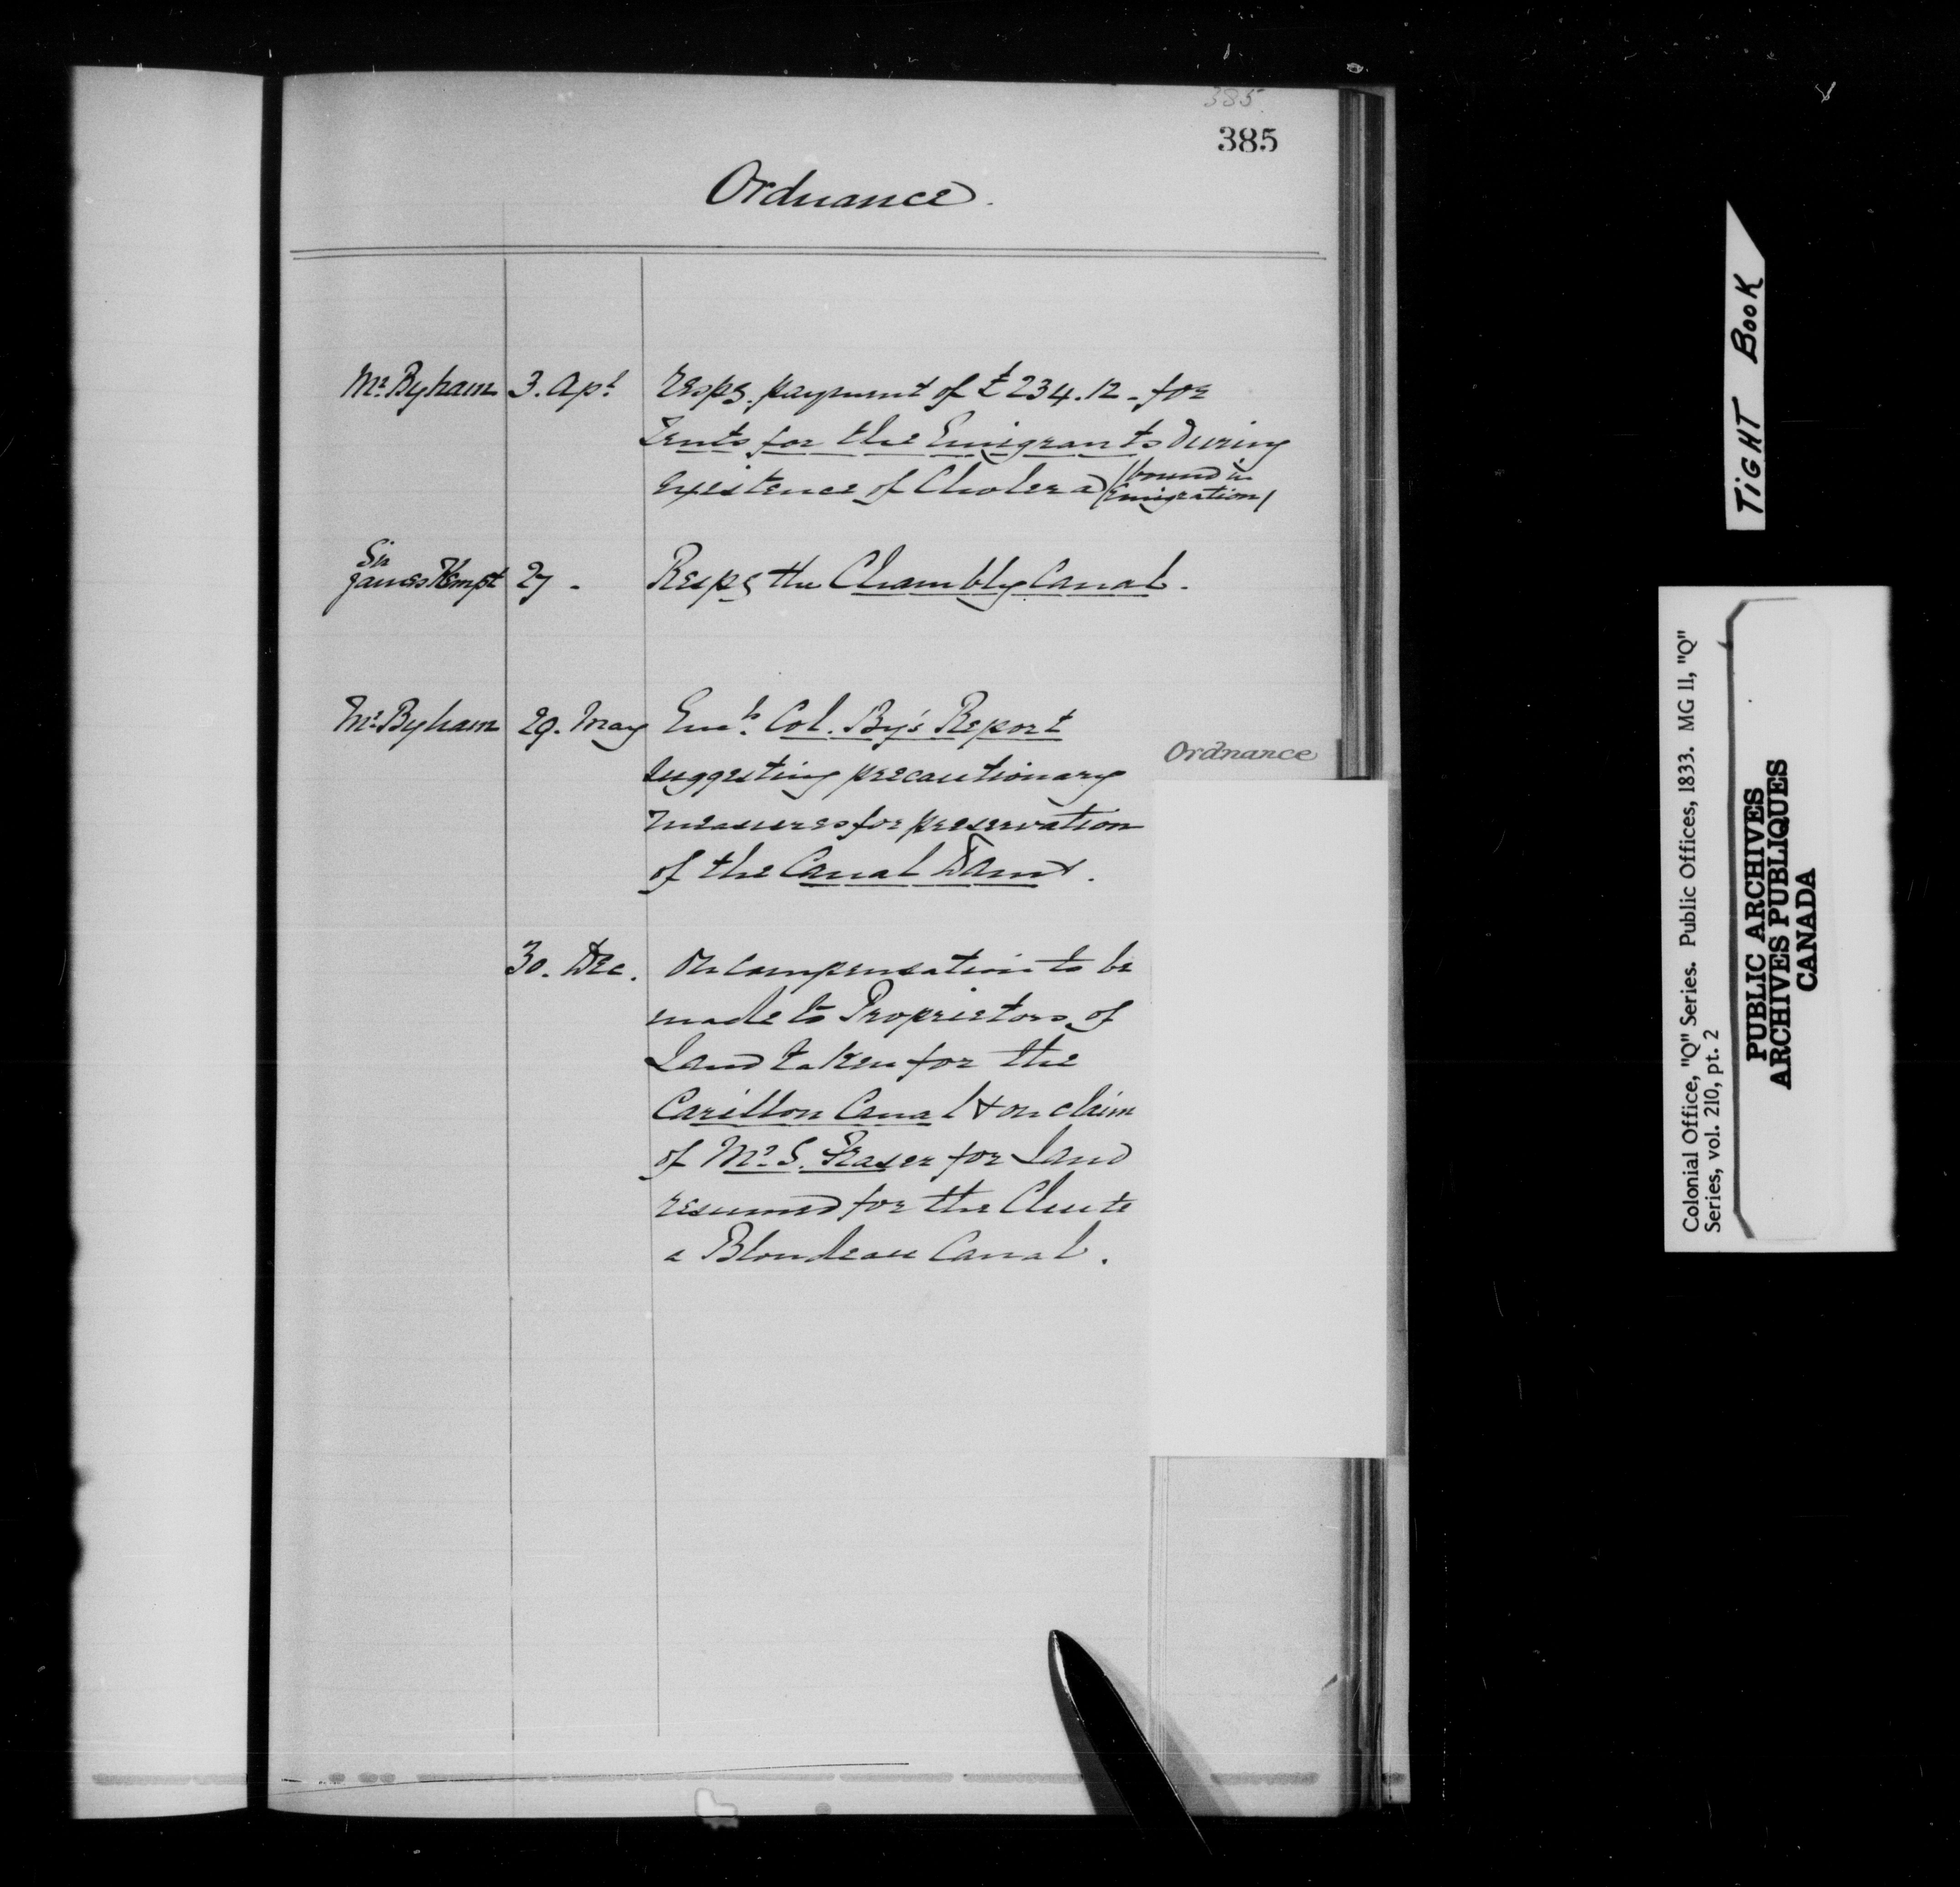 385
385
Ordnance.
Mr. Byham 3. Apl. resps. payment of £234.12 - for
Tents for the Emigrants during
existence of Cholera (bound in
Emigration)
Sir
James Kempt 27 - Resps the Chambly Canal.
Mr. Byham 29. May Encls. Col. By's Report
suggesting precautionary
measures for preservation
of the Canal Dams.
Ordnance
30. Dec. On compensation to be
made to Proprietors of
Land taken for the
Carillon Canal & on claim
of Mr. S. Fraser for Land
resumed for the Chute
a Blondeau Canal.
TIGHT BOOK
Colonial Office, "Q" Series. Public Offices, 1833. MG 11, "Q"
Series, vol. 210, pt. 2
PUBLIC ARCHIVES
ARCHIVES PUBLIQUES
CANADA